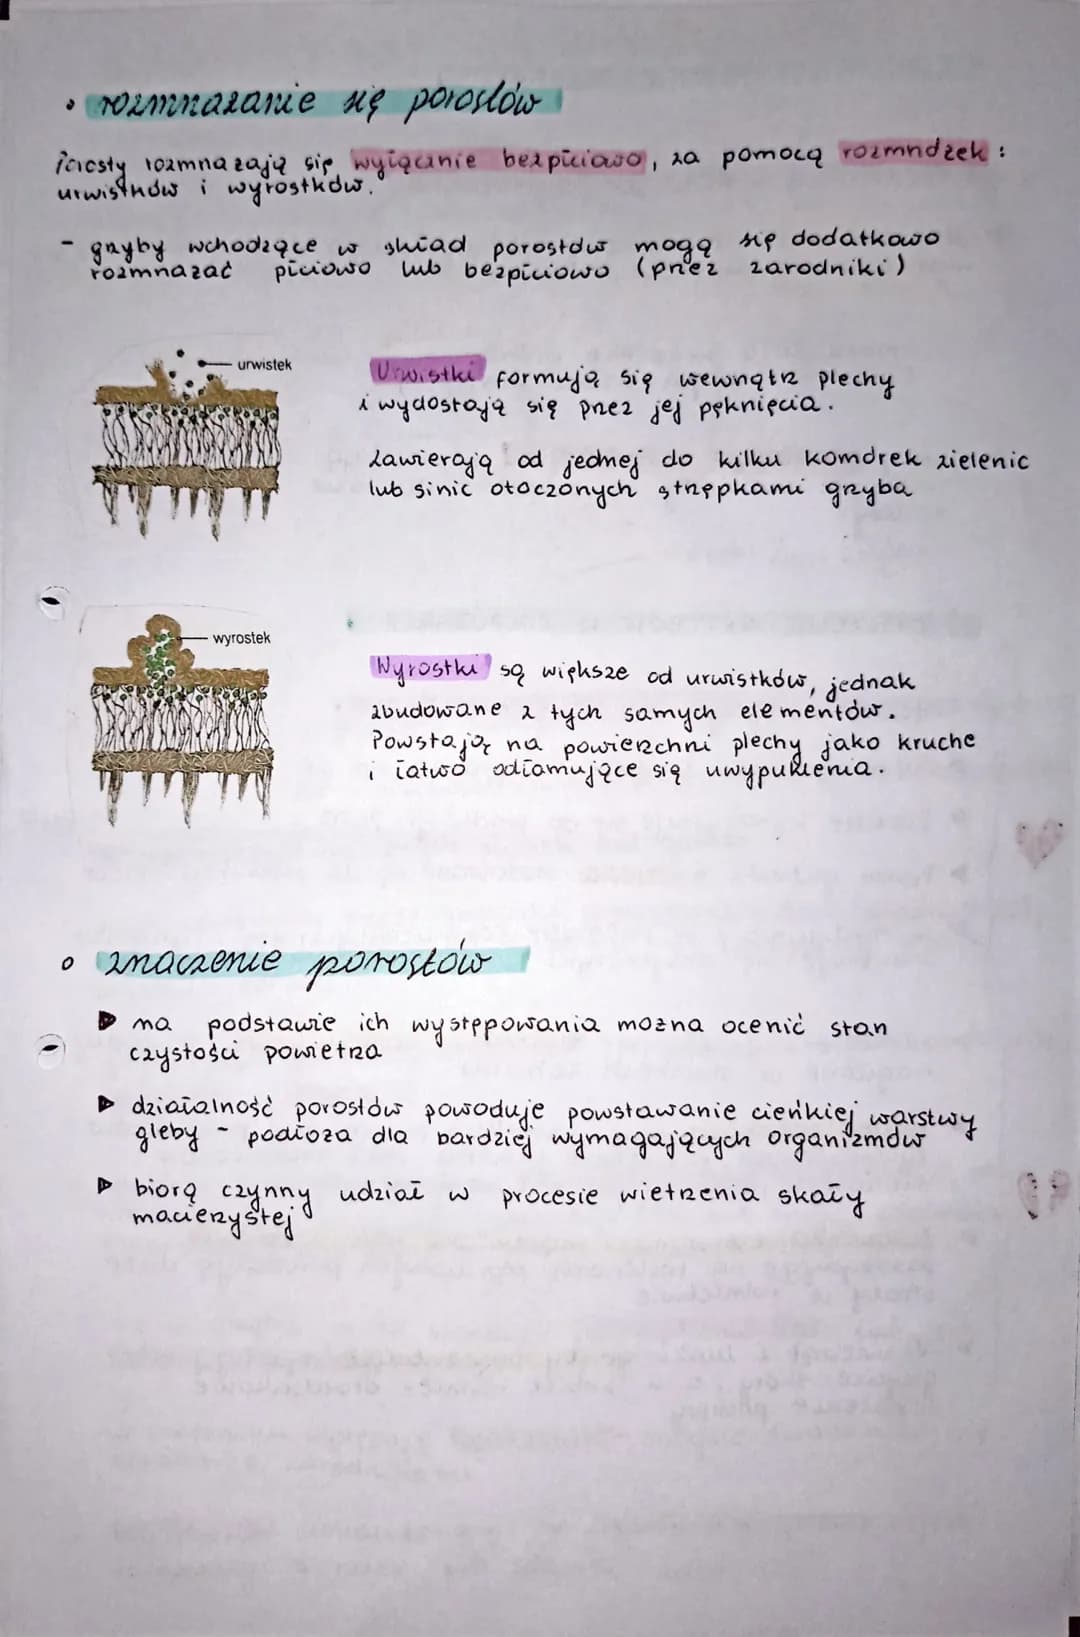 rozmnażanie się porostów
Porosty rozmnażają się wyłącznie bezpłciowo, za pomocą rozmnóżek:
urwistków i wyrostków.
- grzyby wchodzące w skład porostów mogą się dodatkowo
rozmnażać płciowo lub bezpłciowo (przez zarodniki)
urwistek
Urwistki formują się wewnątrz plechy
i wydostają się przez jej pęknięcia.
Zawierają od jednej do kilku komórek zielenic
lub sinic otoczonych strzępkami grzyba
wyrostek
Wyrostki są większe od urwistków, jednak
zbudowane z tych samych elementów.
Powstają na powierzchni plechy jako kruche
i łatwo odłamujące się uwypuklenia.
znaczenie porostów
na podstawie ich występowania można ocenić stan
czystości powietrza
działalność porostów powoduje powstawanie cieńkiej warstwy
gleby - podłoża dla bardziej wymagających organizmów
biorą czynny udział w procesie wietrzenia skały
macierzystej